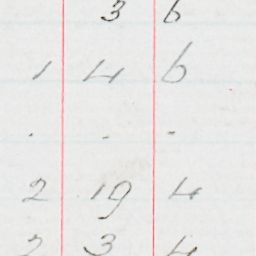 3 6
1 4 6
. . -
2 19 4
2 3 4